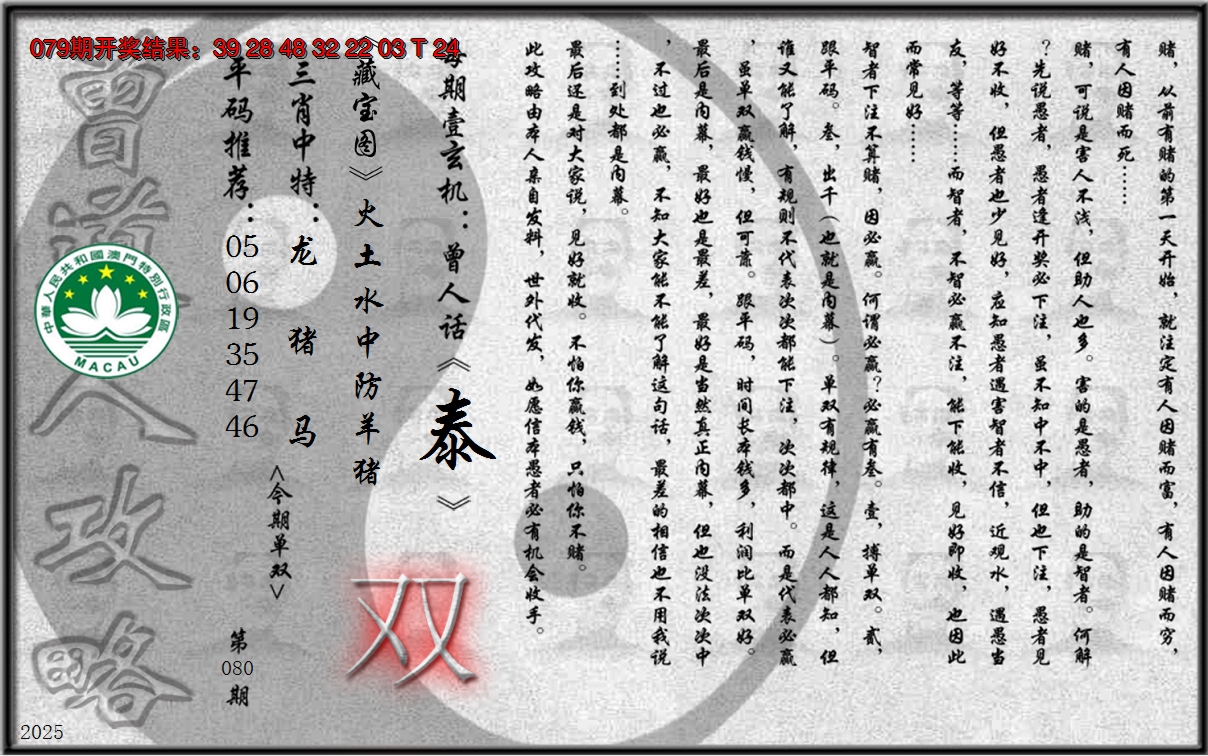 079期开奖结果：39 28 48 32 22 03 T 24
赌，从前有赌的第一天开始，就注定有人因赌而富，有人因赌而穷，
有人因赌而死……
赌，可说是害人不浅，但助人也多。害的是愚者，助的是智者。何解
？先说愚者，愚者逢开奖必下注，虽不知中不中，但也下注，愚者见
好不收，但愚者也少见好，应知愚者遇害智者不信，近观水，遇愚当
友，等等……而智者，不智必赢不注，能下能收，见好即收，也因此
而常见好……
智者下注不算赌，因必赢。何谓必赢？必赢有叁。壹，搏单双。贰，
跟平码。叁，出千（也就是内幕）。单双有规律，这是人人都知，但
谁又能了解，有规则不代表次次都能下注，次次都中。而是代表必赢
，虽单双赢钱慢，但可靠。跟平码，时间长本钱多，利润比单双好。
最后是内幕，最好也是最差，最好是当然真正内幕，但也没法次次中
，不过也必赢，不知大家能不能了解这句话，最差的相信也不用我说
……到处都是内幕。
最后还是对大家说，见好就收。不怕你赢钱，只怕你不赌。
此攻略由本人亲自发料，世外代发，如愿信本愚者必有机会收手。
每期壹玄机：曾人话《泰》
《藏宝图》火土水中防羊猪
双
三肖中特：龙 猪 马
<今期单双>
平码推荐：05 06 19 35 47 46
第080期
曾道人攻略
中華人民共和國澳門特別行政區
MACAU
2025